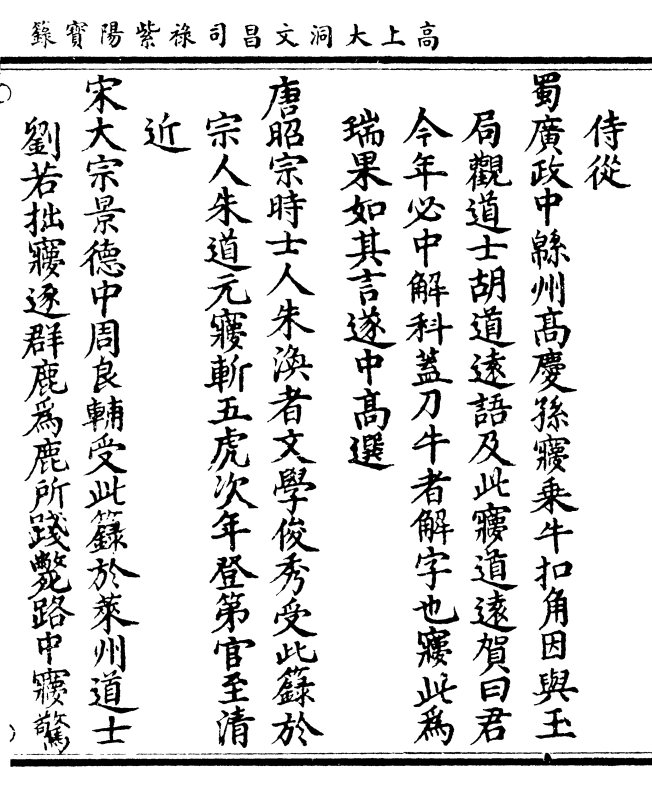 高上大洞文昌司祿紫陽寶籙
侍從
蜀廣政中緜州高慶孫寱乘牛扣角因與玉
局觀道士胡道遠語及此寱道遠賀曰君
今年必中解科蓋刀牛者解字也寱此爲
瑞果如其言遂中高選
唐昭宗時士人朱渙者文學俊秀受此籙於
宗人朱道元寱斬五虎次年登第官至清
近
宋大宗景德中周良輔受此籙於萊州道士
劉若拙寱逐群鹿爲鹿所踐斃路中寱驚